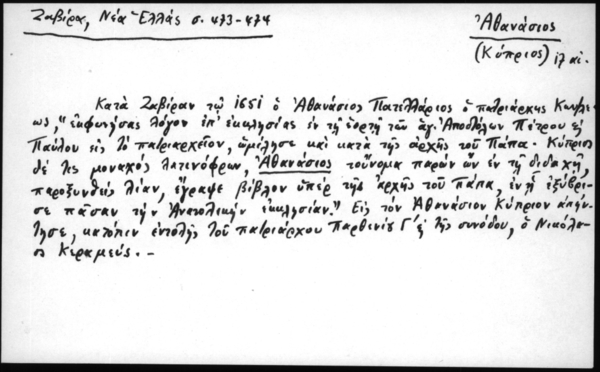 Ζαβίρα, Νέα Ἑλλάς σ. 473-474
Ἀθανάσιος
(Κύπριος) ιζ αἰ.
Κατὰ Ζαβίραν τῷ 1651 ὁ Ἀθανάσιος Πατελλάριος ὁ πατριάρχης Κων/λε
ως, "ἐκφωνήσας λόγον ἐπ' ἐκκλησίας ἐν τῇ ἑορτῇ τῶν ἁγ. Ἀποστόλων Πέτρου καὶ
Παύλου εἰς τὸ πατριαρχεῖον, ὡμίλησε καὶ κατὰ τῆς ἀρχῆς τοῦ Πάπα. Κύπριος
δέ τις μοναχὸς λατινόφρων, Ἀθανάσιος τοὔνομα παρὼν ὢν ἐν τῇ διδαχῇ,
παροξυνθεὶς λίαν, ἔγραψε βίβλον ὑπὲρ τῆς ἀρχῆς τοῦ Πάπα, ἐν ᾗ ἐξύβρι-
σε πᾶσαν τὴν Ἀνατολικὴν ἐκκλησίαν." Εἰς τὸν Ἀθανάσιον Κύπριον ἀπήν-
τησε, κατόπιν ἐντολῆς τοῦ πατριάρχου Παρθενίου Γ' καὶ τῆς συνόδου, ὁ Νικόλα-
ος Κεραμεύς. -